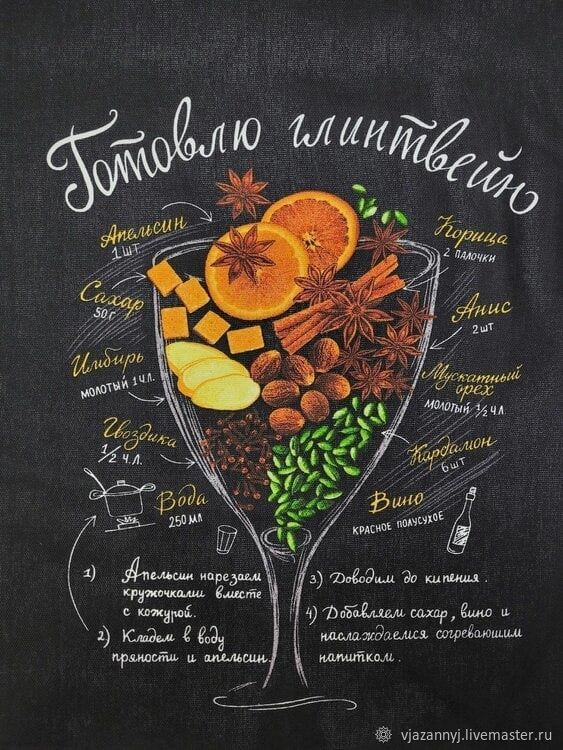 Готовлю глинтвейн
Апельсин
1 шт
Сахар
50 г
Имбирь
молотый 1 ч.л.
Гвоздика
1/2 ч.л.
Вода
250 мл
Корица
2 палочки
Анис
2 шт
Мускатный
орех
молотый 1/2 ч.л.
Кардамон
6 шт
Вино
красное полусухое
1) Апельсин нарезаем
кружочками вместе
с кожурой.
2) Кладем в воду
пряности и апельсин.
3) Доводим до кипения.
4) Добавляем сахар, вино и
наслаждаемся согревающим
напитком.
vjazannyj.livemaster.ru